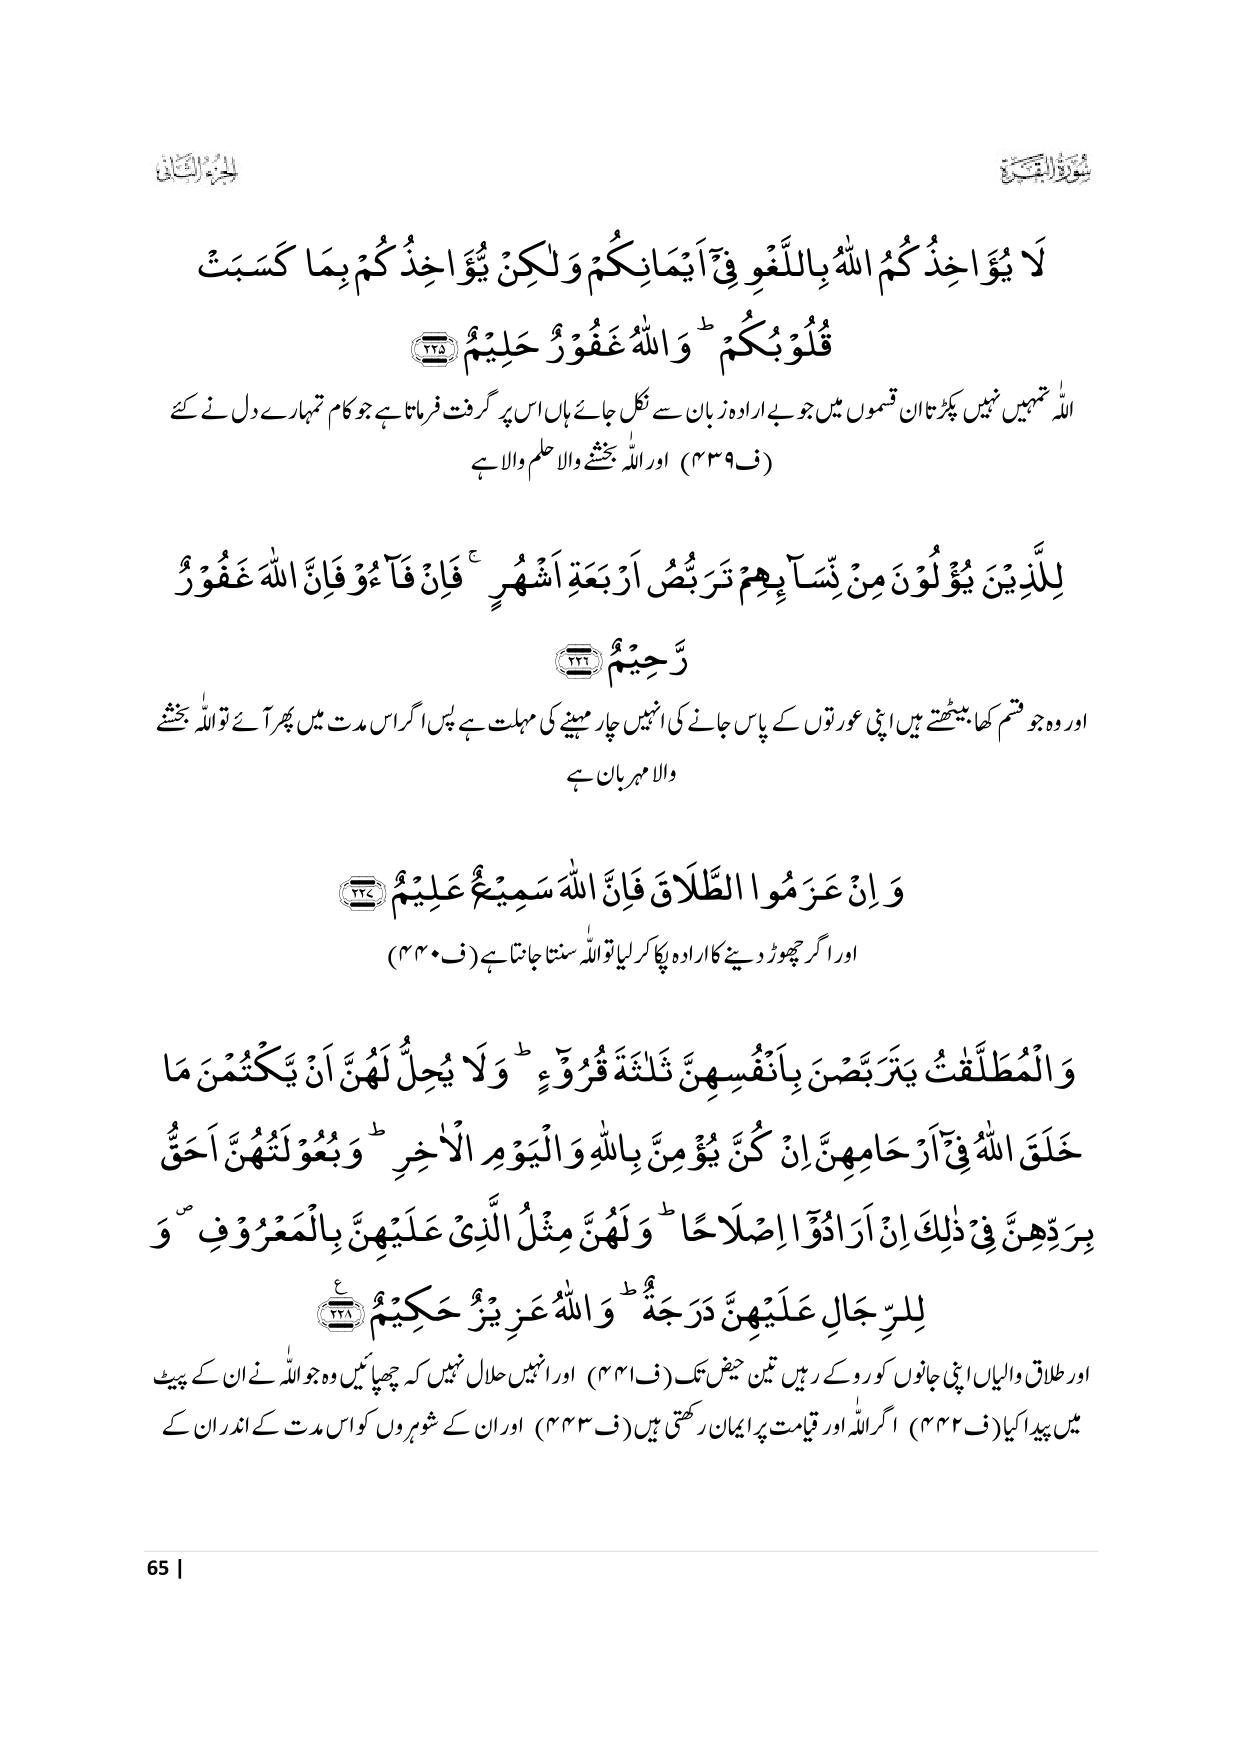 سُوْرَةُ الْبَقَرَة
الجزء الثانی
لَا يُؤَاخِذُكُمُ اللّٰهُ بِاللَّغْوِ فِيْٓ اَيْمَانِكُمْ وَلٰكِنْ يُّؤَاخِذُكُمْ بِمَا كَسَبَتْ
قُلُوْبُكُمْ ؕ وَاللّٰهُ غَفُوْرٌ حَلِيْمٌ ﴿۲۲۵﴾
اللّٰہ تمہیں نہیں پکڑتا ان قسموں میں جو بے ارادہ زبان سے نکل جائے ہاں اس پر گرفت فرماتا ہے جو کام تمہارے دل نے کئے
(ف۴۳۹) اور اللّٰہ بخشنے والا حلم والا ہے
لِلَّذِيْنَ يُؤْلُوْنَ مِنْ نِّسَآئِهِمْ تَرَبُّصُ اَرْبَعَةِ اَشْهُرٍ ۚ فَاِنْ فَآءُوْ فَاِنَّ اللّٰهَ غَفُوْرٌ
رَّحِيْمٌ ﴿۲۲۶﴾
اور وہ جو قسم کھا بیٹھتے ہیں اپنی عورتوں کے پاس جانے کی انہیں چار مہینے کی مہلت ہے پس اگر اس مدت میں پھر آئے تو اللّٰہ بخشنے
والا مہربان ہے
وَ اِنْ عَزَمُوا الطَّلَاقَ فَاِنَّ اللّٰهَ سَمِيْعٌ عَلِيْمٌ ﴿۲۲۷﴾
اور اگر چھوڑ دینے کا ارادہ پکا کر لیا تو اللّٰہ سنتا جانتا ہے (ف۴۴۰)
وَالْمُطَلَّقٰتُ يَتَرَبَّصْنَ بِاَنْفُسِهِنَّ ثَلٰثَةَ قُرُوْٓءٍ ؕ وَلَا يُحِلُّ لَهُنَّ اَنْ يَّكْتُمْنَ مَا
خَلَقَ اللّٰهُ فِيْٓ اَرْحَامِهِنَّ اِنْ كُنَّ يُؤْمِنَّ بِاللّٰهِ وَالْيَوْمِ الْاٰخِرِ ؕ وَبُعُوْلَتُهُنَّ اَحَقُّ
بِرَدِّهِنَّ فِيْ ذٰلِكَ اِنْ اَرَادُوْٓا اِصْلَاحًا ؕ وَلَهُنَّ مِثْلُ الَّذِيْ عَلَيْهِنَّ بِالْمَعْرُوْفِ ۪ وَ
لِلرِّجَالِ عَلَيْهِنَّ دَرَجَةٌ ؕ وَاللّٰهُ عَزِيْزٌ حَكِيْمٌ ﴿۲۲۸﴾ ع
اور طلاق والیاں اپنی جانوں کو روکے رہیں تین حیض تک (ف۴۴۱) اور انہیں حلال نہیں کہ چھپائیں وہ جو اللّٰہ نے ان کے پیٹ
میں پیدا کیا (ف۴۴۲) اگر اللّٰہ اور قیامت پر ایمان رکھتی ہیں (ف۴۴۳) اور ان کے شوہروں کو اس مدت کے اندر ان کے
65 |